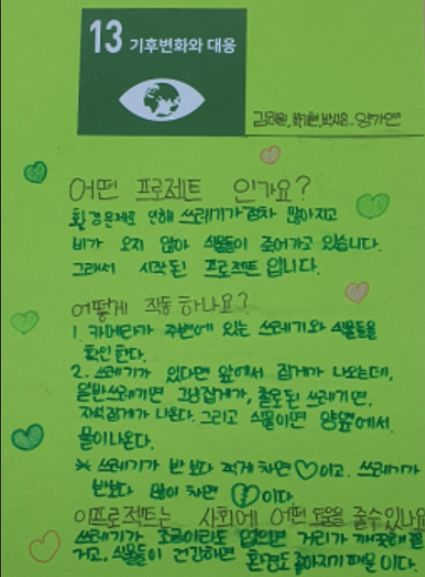 13 기후변화와 대응
양가연
어떤 프로젝트 인가요?
환경문제로 인해 쓰레기가 점차 많아지고
비가 오지 않아 식물들이 죽어가고 있습니다.
그래서 시작된 프로젝트 입니다.
어떻게 작동 하나요?
1. 카메라가 주변에 있는 쓰레기와 식물들을
확인 한다.
2. 쓰레기가 있다면 앞에서 집게가 나오는데,
일반쓰레기면 그냥집게가, 철로된 쓰레기면,
자석집게가 나온다. 그리고 식물이면 양옆에서
물이나온다.
* 쓰레기가 반 보다 적게 차면 ♡이고, 쓰레기가
반보다 많이 차면 💔이다.
이프로젝트는 사회에 어떤 도움을 줄수있나요
쓰레기가 조금이라도 없으면 거리가 깨끗해질
거고, 식물들이 건강하면 환경도 좋아지기 때문이다.